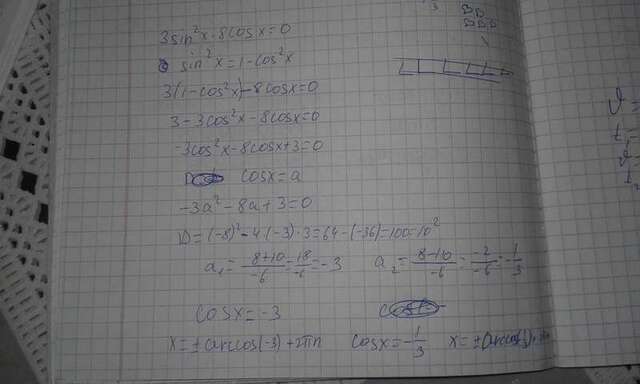 3sin²x - 8cosx = 0
sin²x = 1 - cos²x
3(1 - cos²x) - 8cosx = 0
3 - 3cos²x - 8cosx = 0
-3cos²x - 8cosx + 3 = 0
cosx = a
-3a² - 8a + 3 = 0
D = (-8)² - 4·(-3)·3 = 64 - (-36) = 100 = 10²
a₁ = 8+10/-6 = 18/-6 = -3 a₂ = 8-10/-6 = -2/-6 = 1/3
cosx = -3
x = ± arccos(-3) + 2πn cosx = 1/3 x = ±